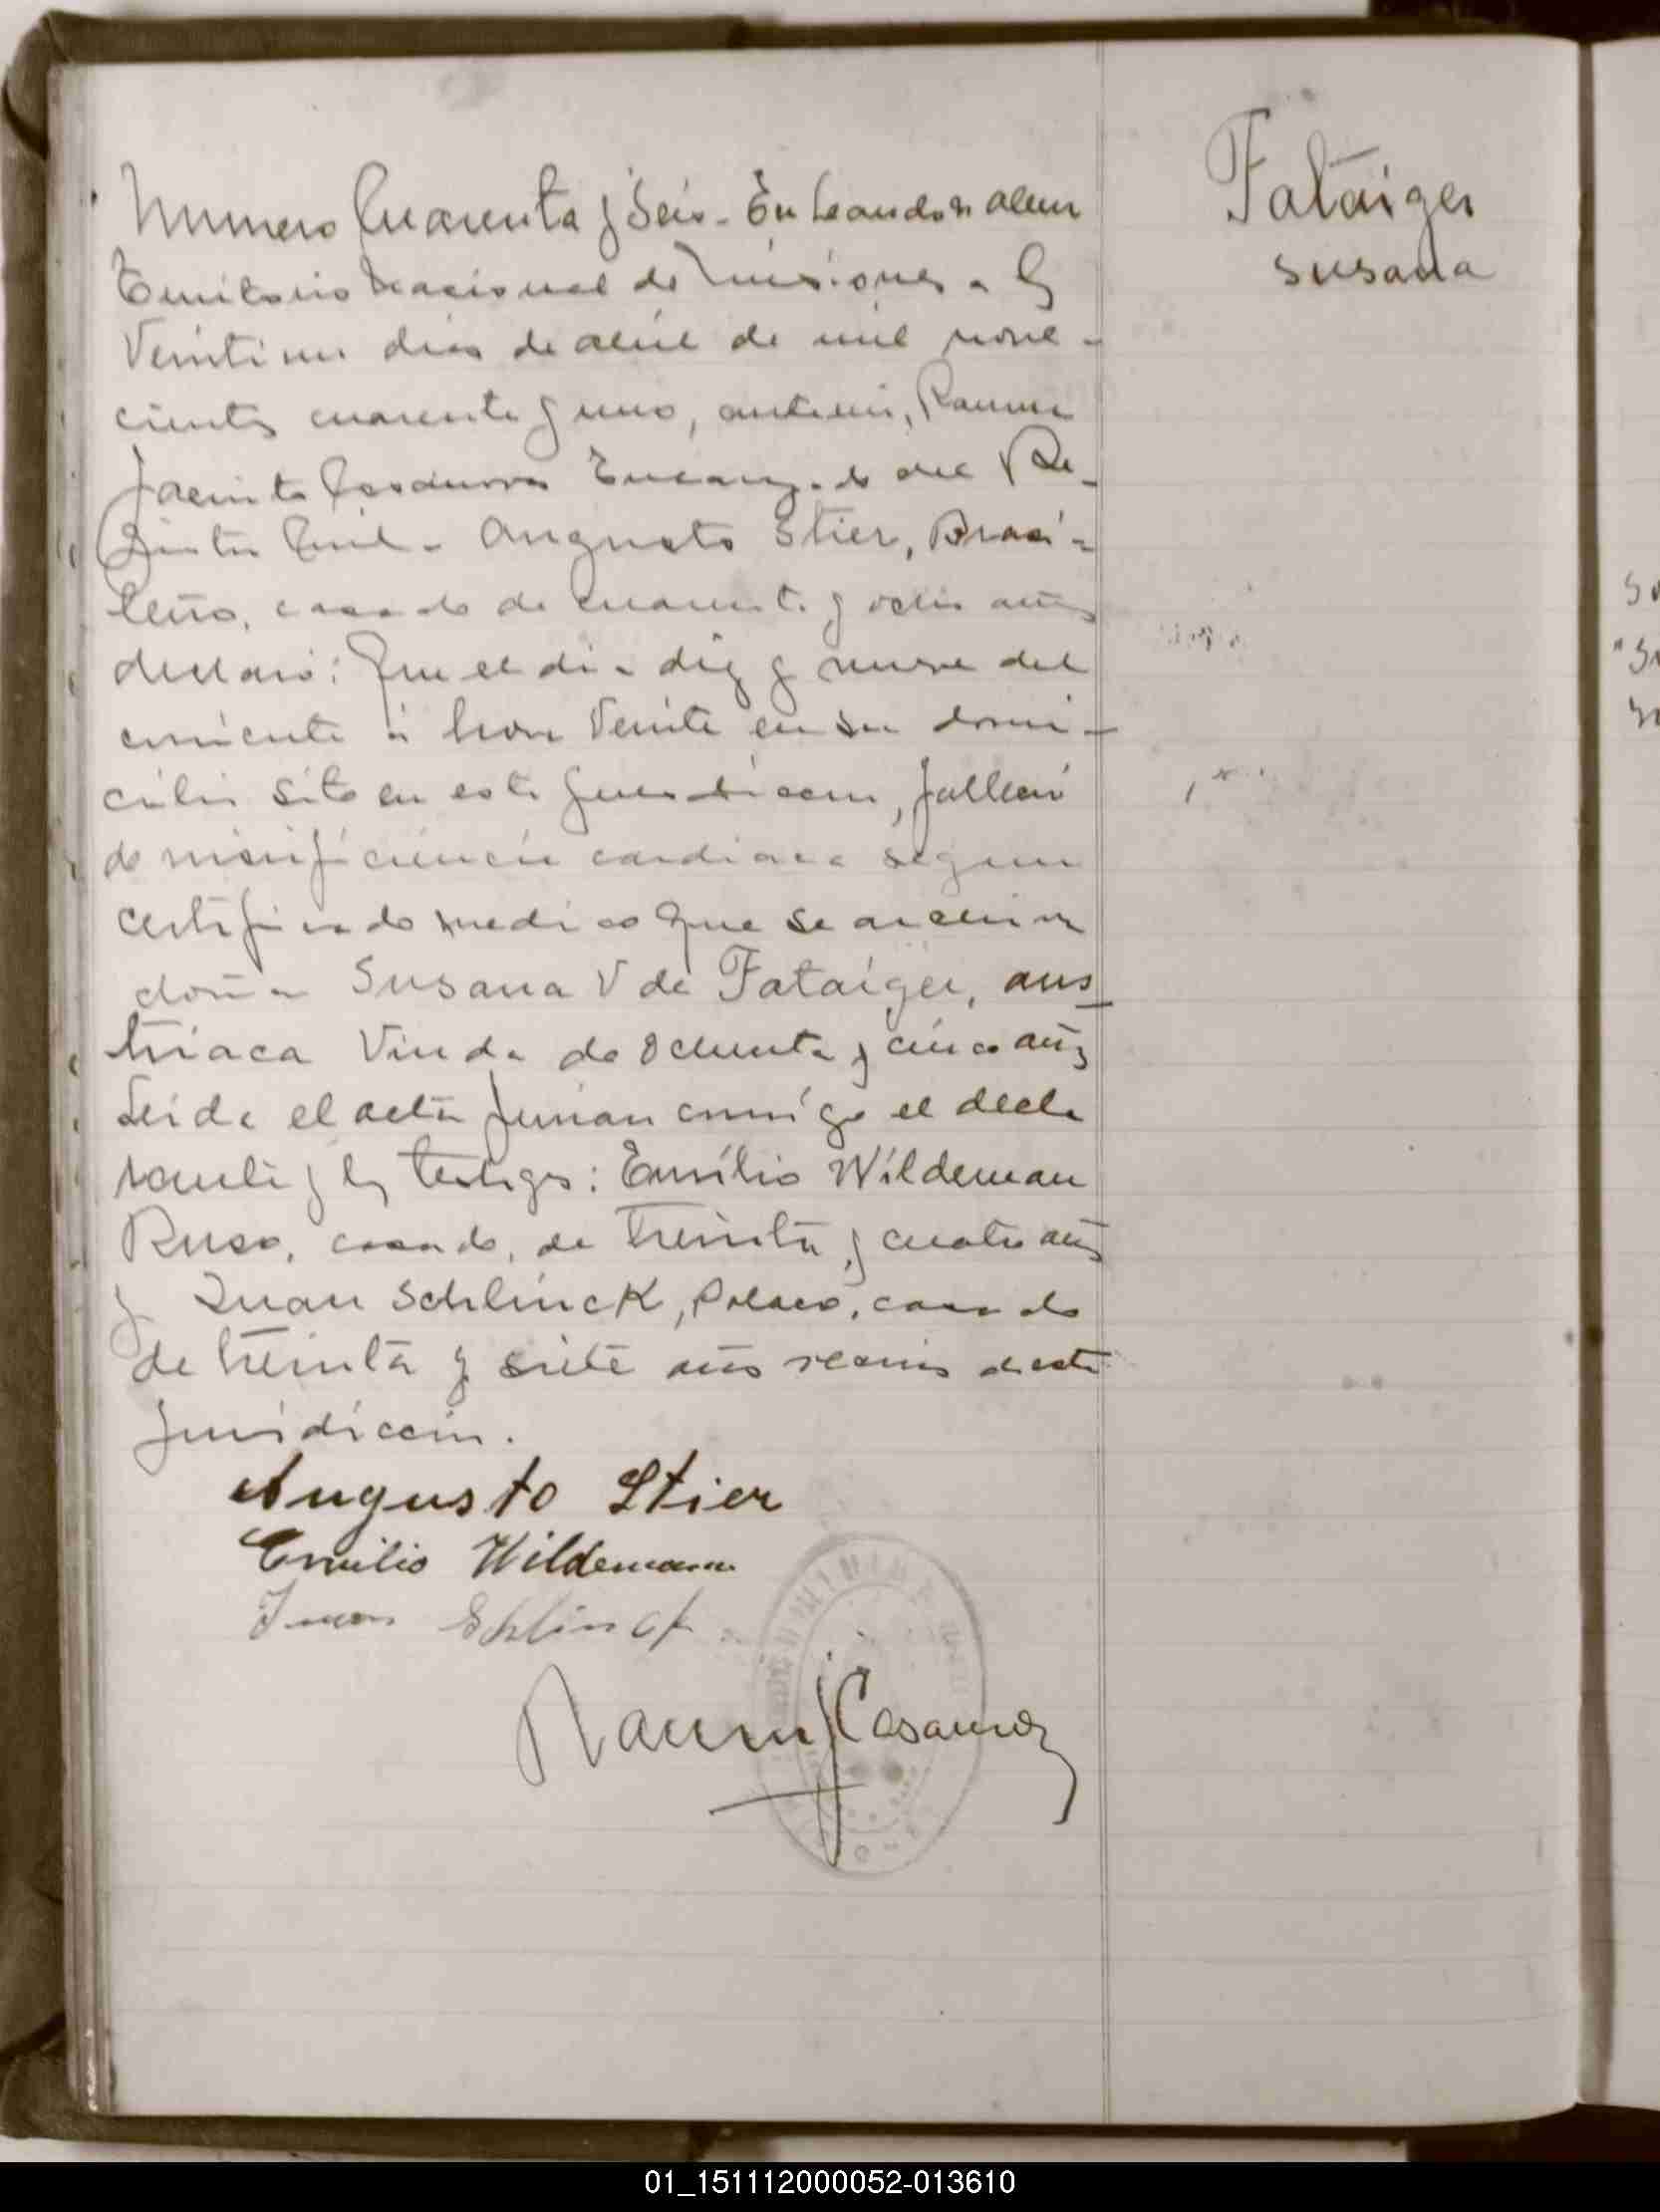 Numero Cuarenta y Seis - En Leandro N Alem
Territorio Nacional de Misiones a los
Veintiun dias de abril de mil nove-
cientos cuarenta y uno, ante mi, Ramon
Jacinto Encargado del Re-
gistro Civil - Augusto Stier, Brasi-
leño, casado de cuarenta y ocho años
declaró: Que el dia diez y nueve del
corriente a hora Veinte en su domi-
cilio sito en esta jurisdiccion, falleció
de insuficiencia cardiaca segun
certificado medico que se archiva
doña Susana V de Fataiger, aus-
triaca Viuda de Ochenta y cinco años
Leida el acta firman conmigo el decla
rante y los testigos: Emilio Wildeman
Ruso, casado, de treinta y cuatro años
y Juan Schlinck, Polaco, casado
de treinta y siete años vecinos de esta
jurisdiccion.
Augusto Stier
Emilio Wildemann
Juan Schlinck
Ramon J Casamor
Fataiger
Susana
01_151112000052-013610